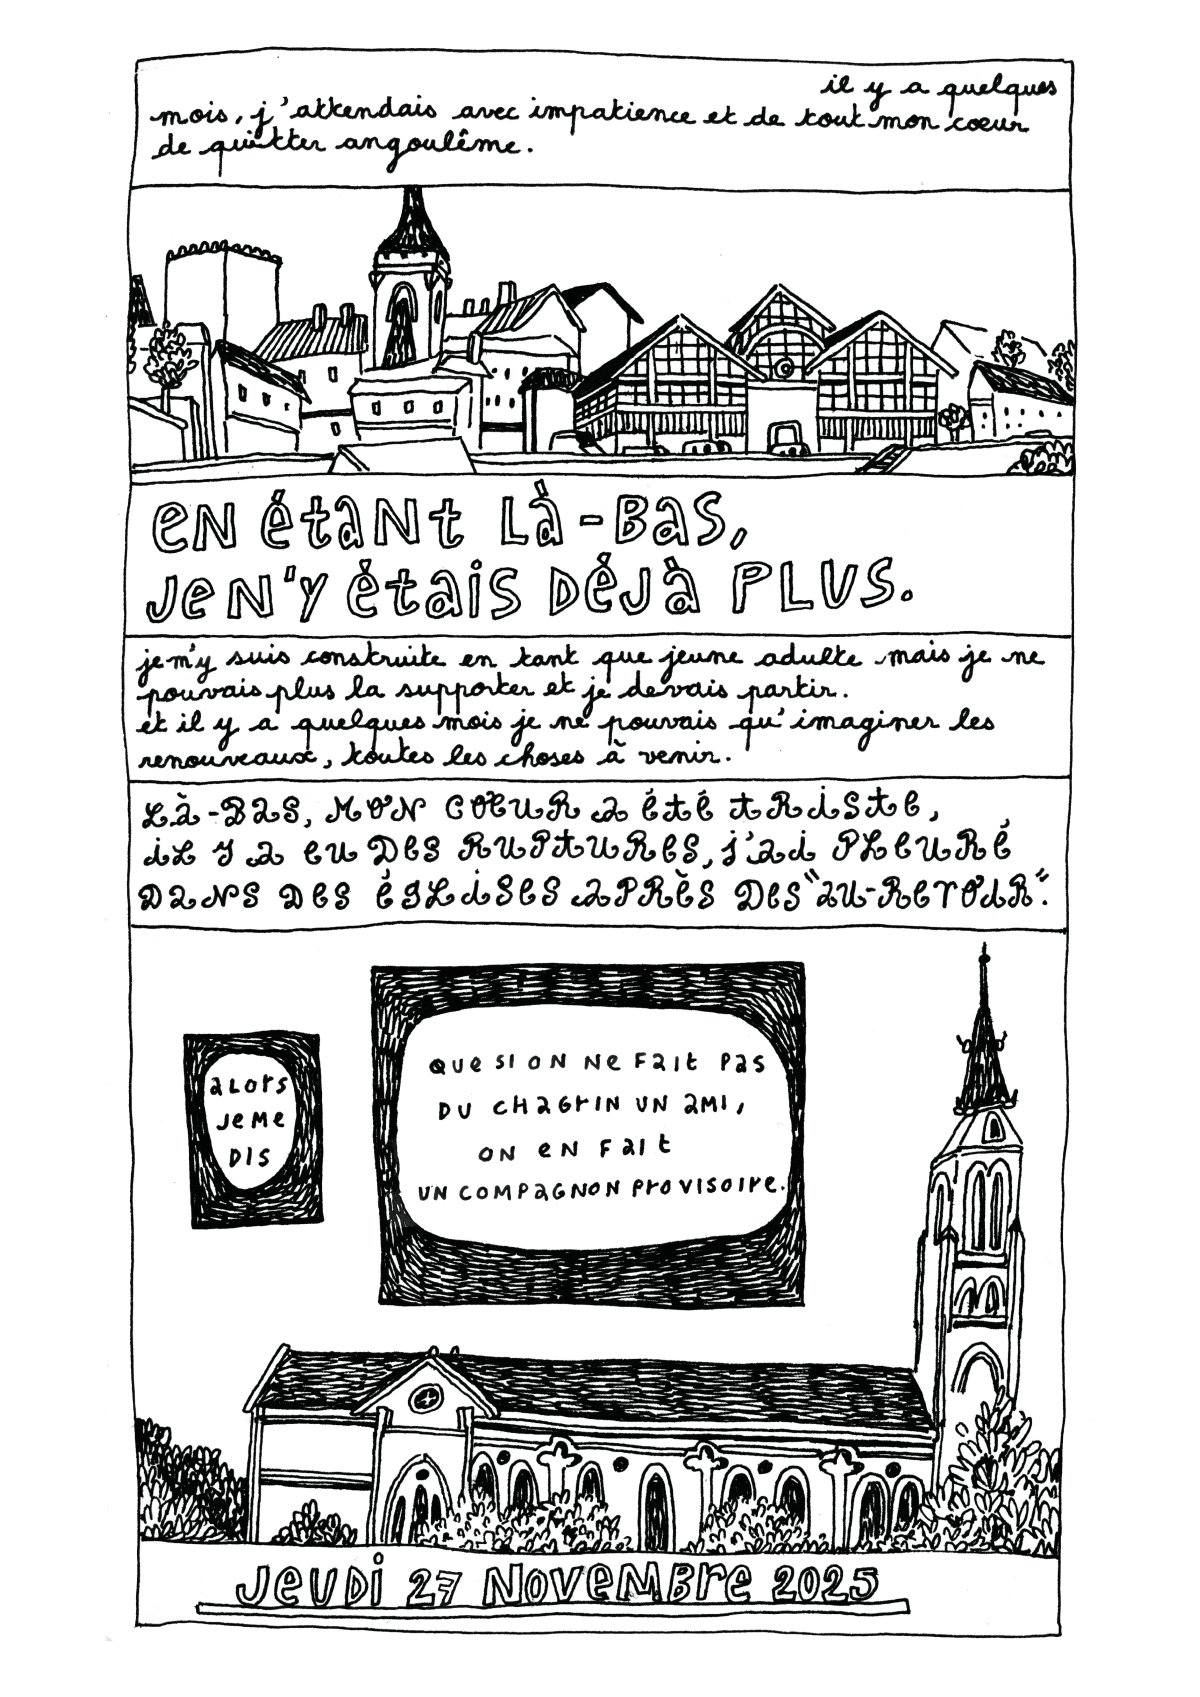 il y a quelques
mois, j'attendais avec impatience et de tout mon cœur
de quitter angoulême.
EN étaNt Là-Bas,
JeN'Y étais DéJà PLUS.
je m'y suis construite en tant que jeune adulte mais je ne
pouvais plus la supporter et je devais partir.
et il y a quelques mois je ne pouvais qu'imaginer les
renouveaux, toutes les choses à venir.
Là-Bas, MON CŒUR a été tRiste,
iL Y a eu Des RUPtUReS, j'ai PLeURé
DaNS DeS éGLiSeS aPRèS DeS "aU-ReVOiR".
aLors
Je me
Dis
Que si on ne Fait Pas
Du chagrin un ami,
on en Fait
un compagnon provisoire.
JeuDi 27 NoveMBre 2025